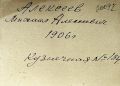 Алексеев
Михаил Алексеевич
1906 г.
Кузнечная №